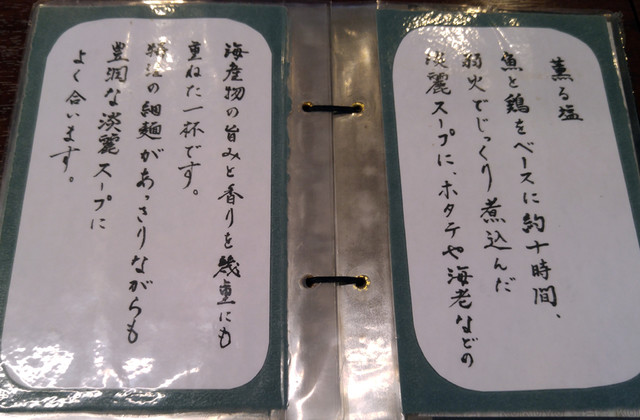 薫る塩
魚と鶏をベースに約十時間、
弱火でじっくり煮込んだ
淡麗スープに、ホタテや海老などの
海産物の旨みと香りを幾重にも
重ねた一杯です。
特注の細麺があっさりながらも
豊潤な淡麗スープに
よく合います。